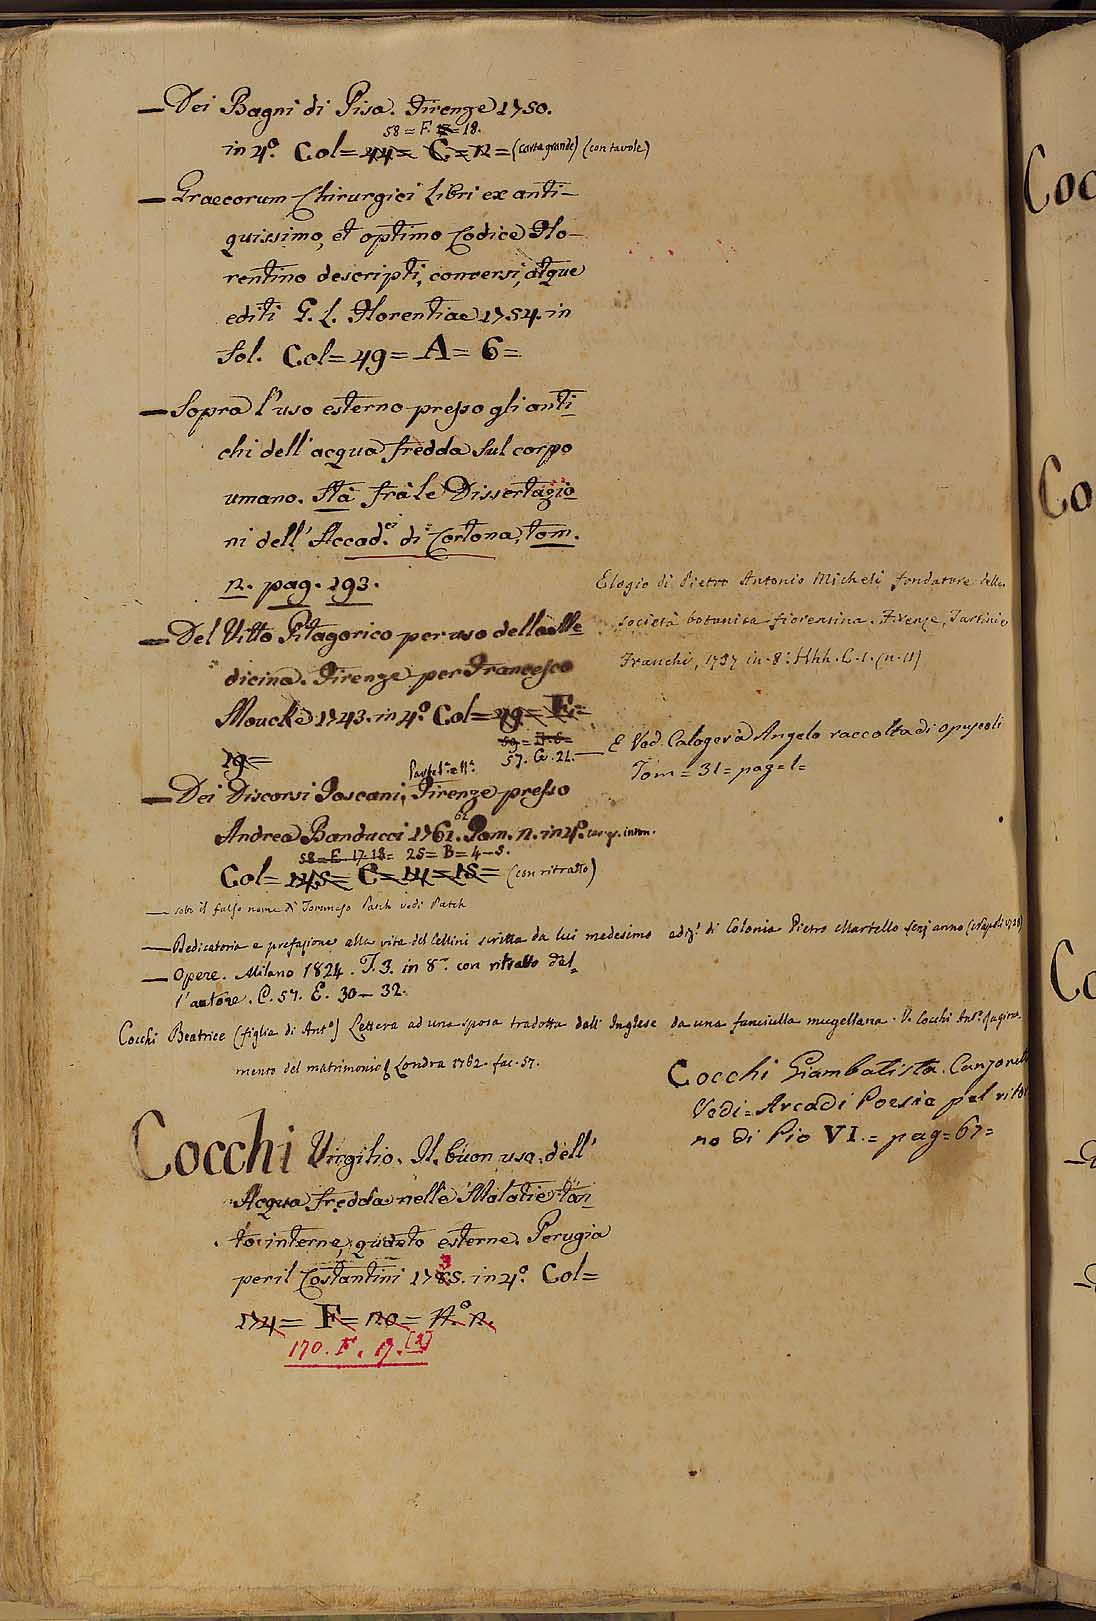 — Dei Bagni di Pisa. Firenze 1750.
58 = F. = 18.
in 4.° Col = 44 = C = 12 = (carta grande) (con tavole)
— Graecorum Chirurgici Libri ex anti-
quissimo, et optimo Codice Flo-
rentino descripti, conversi, atque
editi G. L. Florentiae 1754. in
fol. Col = 49 = A = 6 =
— Sopra l'uso esterno presso gli anti
chi dell'acqua fredda sul corpo
umano. Stà frà le Dissertazio
ni dell'Accad.ei di Cortona, tom.
n. pag. 193.
Elogio di Pietro Antonio Micheli fondatore della
società botanica fiorentina. Firenze, Tartini e
Franchi, 1737 in-8.° Hhh. C. 1. (n. 11)
— Del Vitto Pitagorico per uso della Me
dicina. Firenze per Francesco
Moucke 1743. in 4.° Col = 49 = E =
19 =
57. G. 21. — E Ved. Calogerà Angelo raccolta di opuscoli
Tom = 31 = pag = 1 =
— Dei Discorsi Toscani, Firenze presso
Andrea Bonducci 1761. 62 Tom. n. in 4.°
58 = E. 17. 18 = 25 = B = 4 - 5.
Col = 145 = C = 14 = 15 = (con ritratto)
— sotto il falso nome di Tommaso Patch vedi Patch
— Dedicatoria e prefazione alla vita del Cellini scritta da lui medesimo ediz.e di Colonia Pietro Martello senz'anno (Napoli 1728)
— Opere. Milano 1824. T. 3. in 8.° con ritratto del-
l'autore. C. 57. E. 30 — 32.
Cocchi Beatrice (figlia di Ant.o) Lettera ad una sposa tradotta dall'Inglese da una fanciulla mugellana. V. Cocchi Ant.o
mento del matrimonio Londra 1762. fac. 57.
Cocchi Giambatista. Canzonett
Vedi = Arcadi Poesie pel ritor
no di Pio VI. = pag = 67 =
Cocchi Virgilio. Il buon uso dell'
Acqua fredda nelle Malatie tan
to interne, quanto esterne. Perugia
per il Costantini 1735. in 4.° Col =
174 = F = 20 = N.° n.
170. F. 17. [2]
Coc
Co
Co